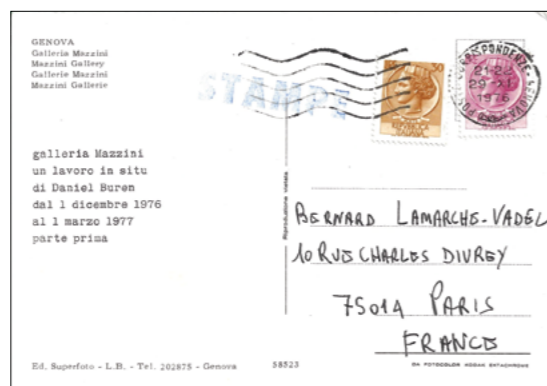 GENOVA
Galleria Mazzini
Mazzini Gallery
Galerie Mazzini
Mazzini Gallerie
STAMPE
21-22
29·XI
1976
galleria Mazzini
un lavoro in situ
di Daniel Buren
dal 1 dicembre 1976
al 1 marzo 1977
parte prima
Riproduzione vietata
BERNARD LAMARCHE-VADEL
10 RUE CHARLES DIVREY
75014 PARIS
FRANCE
Ed. Superfoto - L.B. - Tel. 202875 - Genova
58523
DA FOTOCOLOR KODAK EKTACHROME